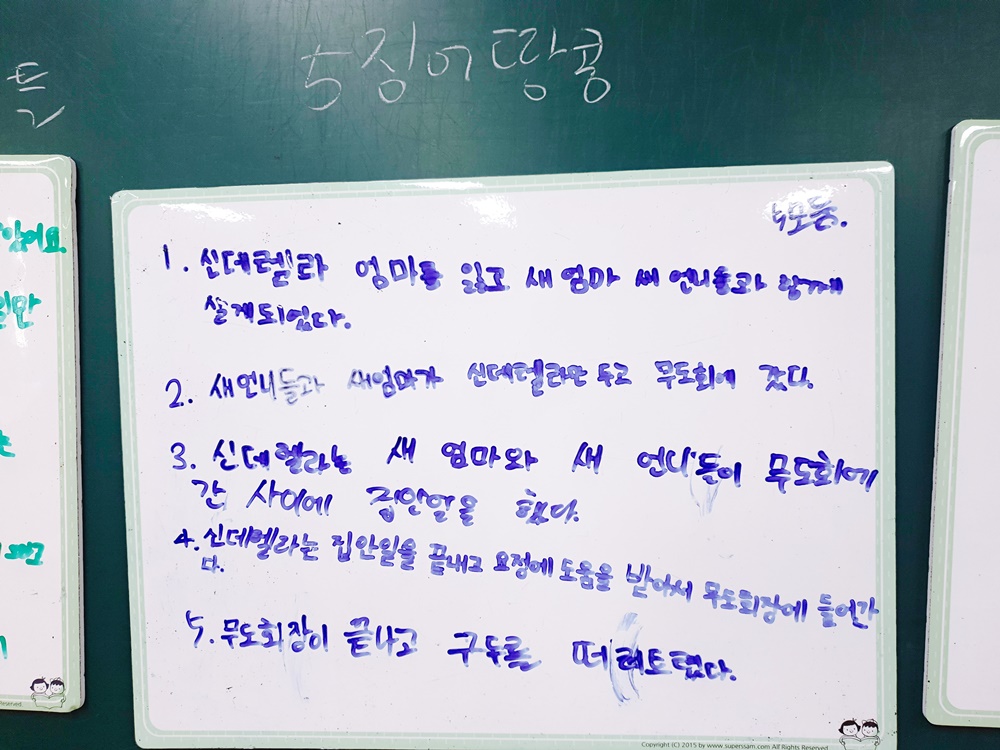 5징어땅콩
틀
5모둠.
1. 신데렐라 엄마를 잃고 새 엄마 써 언니들과 함께
살게되었다.
2. 새언니들과 새엄마가 신데렐라만 두고 무도회에 갔다.
3. 신데렐라는 새 엄마와 새 언니들이 무도회에
간 사이에 집안일을 했다.
4. 신데렐라는 집안일을 끝내고 요정에 도움을 받아서 무도회장에 들어간
다.
5. 무도회장이 끝나고 구두를 떠러트렸다.
있어요.
일만
Copyright (C) 2015 by www.superssam.com All Rights Reserved
Reserved